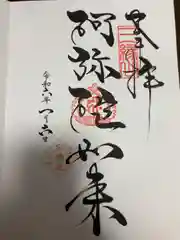 奉拝
阿弥陀如来
令和六年一月六日